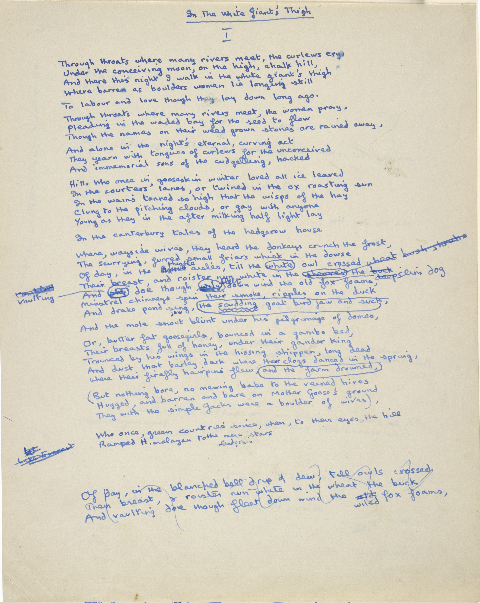 In The White Giant's Thigh
I
Through throats where many rivers meet, the curlews cry
Under the conceiving moon, on the high, chalk hill,
And there this night I walk in the white giant's thigh
Where barren as boulders women lie longing still
To labour and love though they lay down long ago.
Through throats where many rivers meet, the women pray,
Pleading in the waded bay for the seed to flow
Though the names on their weed grown stones are rained away,
And alone in the night's eternal, curving act
They yearn with tongues of curlews for the unconceived
And immemorial sons of the cudgelling, hacked
Hill. Who once in gooseskin winter loved all ice leaved
In the courters' lanes, or twined in the ox roasting sun
In the wains tonned so high that the wisps of the hay
Clung to the pitching clouds, or gay with anyone
Young as they in the after milking light lay
In the canterbury tales of the hedgerow house
where, wayside wives, they heard the donkeys crunch the frost,
The scurrying, furred small friars in the dowse
Of day, in the aisles, till the white owl crossed
Their breast and roister white in the the buck
vaulting
And doe though down wind the old fox foams, dog
minstrel chimneys their smoke, ripples on the duck
And drake pond the scudding goat bird jaw and suck,
And the mole snout blunt under his pilgrimage of domes,
Or, butter fat goosegirls, bounced in a gambo bed,
Their breasts full of honey, under their gander king
Trounced by his wings in the hissing shippen, long dead
And dust that barley dark where their clogs danced in the spring,
where their firefly hairpins flew, and the farm drowned,
(But nothing bore, no mewing babe to the veined hives
Hugged, and barren and bare on Mother Goose's ground
They with the simple Jacks were a boulder of wives),
Who once, green countries since, were to their eyes the hill
Ramped Himalayan to the stars
Of day, in the blanched bell drip of dew, till owls crossed
Their breast, & roister run white in the wheat the buck
And vaulting doe though fleet down wind the wild fox foams,